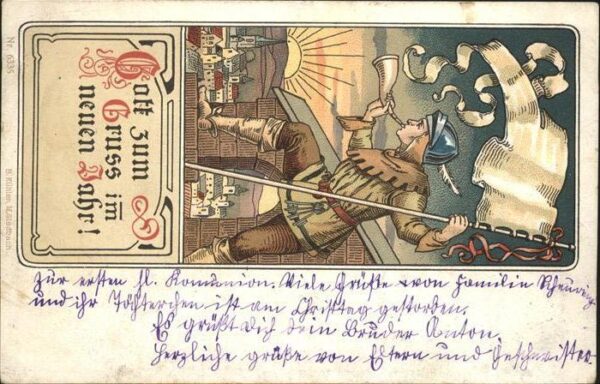 Gott zum
Gruss im
neuen Jahr!
Nr. 6335
B. Kühlen, M.Gladbach.
Zur ersten hl. Komunion. Viele Grüße von Familie
und ihr Töchterchen ist am Christtag gestorben.
Es grüßt Dich dein Bruder Anton.
Herzliche grüße von Eltern und Geschwister